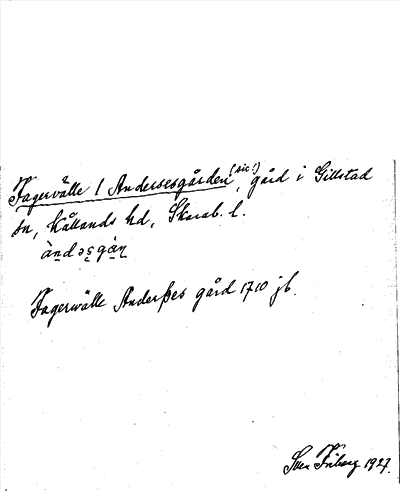 Fagervälle / Andersesgården (sic!), gård i Gillstad
sn, Kållands hd, Skarab. l.
àndəsgàṇ
Fagerwälle Anderßes gård 1710 jb.
Sven Friberg 1927.